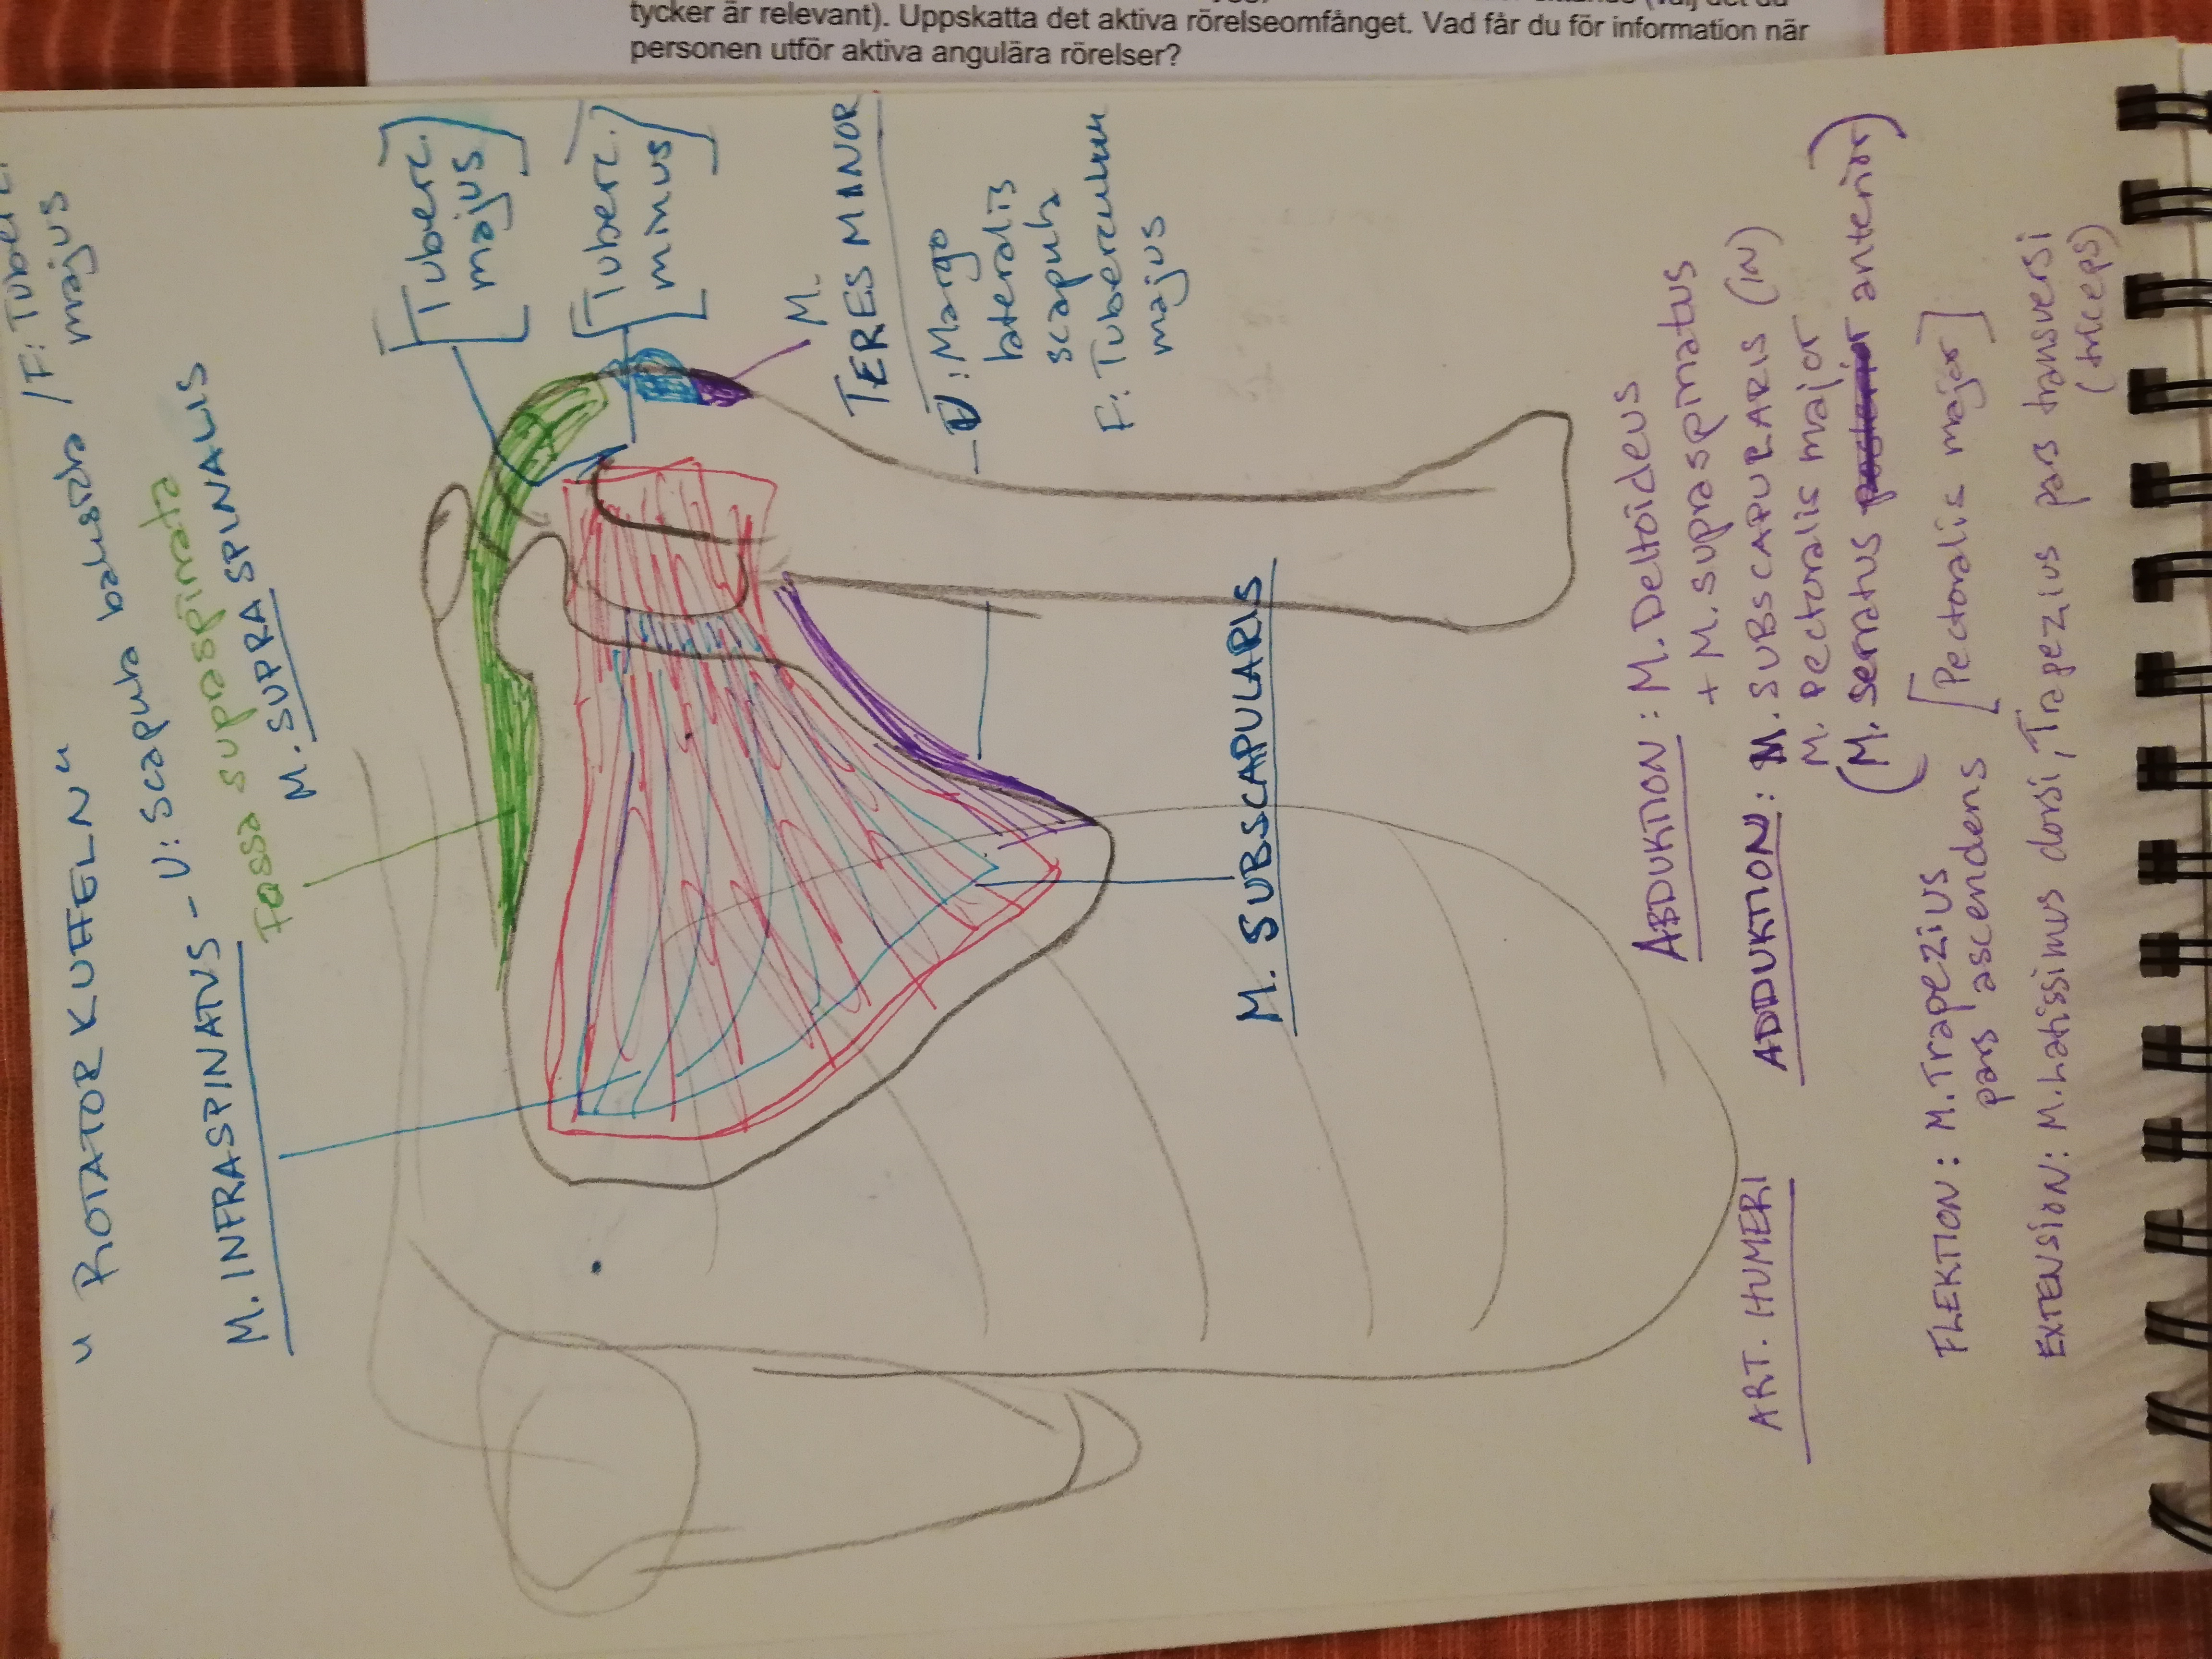 tycker är relevant). Uppskatta det aktiva rörelseomfånget. Vad får du för information när
personen utför aktiva angulära rörelser?
" ROTATOR KUFFELN "
M. INFRASPINATUS - U: scapula baksida / F: Tuberc.
majus
Fossa supraspinata
M. SUPRASPINALIS
[Tuberc. majus]
[Tuberc. minus]
M.
TERES MINOR
U: Margo
lateralis
scapula
F: Tuberculum
majus
M. SUBSCAPULARIS
ART. HUMERI
ABDUKTION: M. Deltoideus
+ M. supraspinatus
ADDUKTION: M. SUBSCAPULARIS (IN)
M. pectoralis major
(M. serratus anterior)
FLEKTION: M. Trapezius
pars ascendens [Pectoralis major]
EXTENSION: M. Latissimus dorsi, Trapezius pars transversi
(triceps)